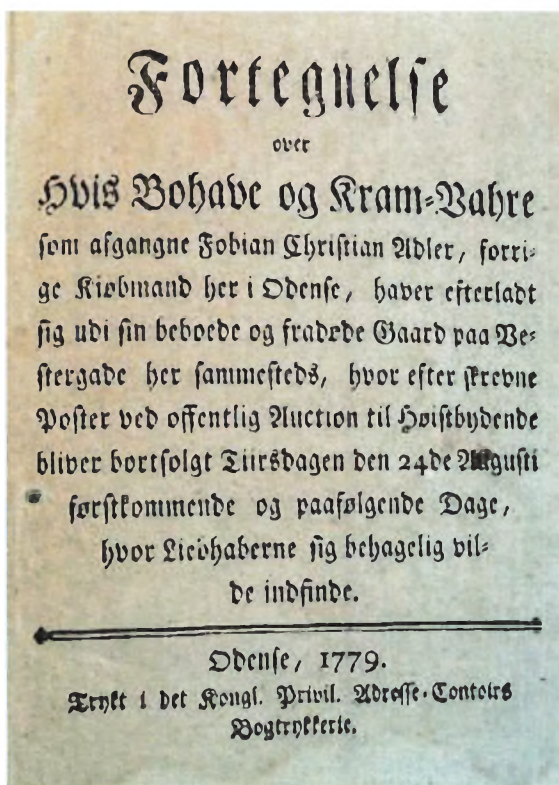 Fortegnelse
over
Hvis Bohave og Kram-Vahre
som afgangne Fobian Christian Adler, forri-
ge Kiøbmand her i Odense, haver efterladt
sig udi sin beboede og fradøde Gaard paa Ve-
stergade her sammesteds, hvor efter skrevne
Poster ved offentlig Auction til Høistbydende
bliver bortsolgt Tiirsdagen den 24de Augusti
førstkommende og paafølgende Dage,
hvor Liebhaberne sig behagelig vil-
de indfinde.
Odense, 1779.
Trykt i det Kongl. Privil. Adresse-Contoirs
Bogtrykkerie.